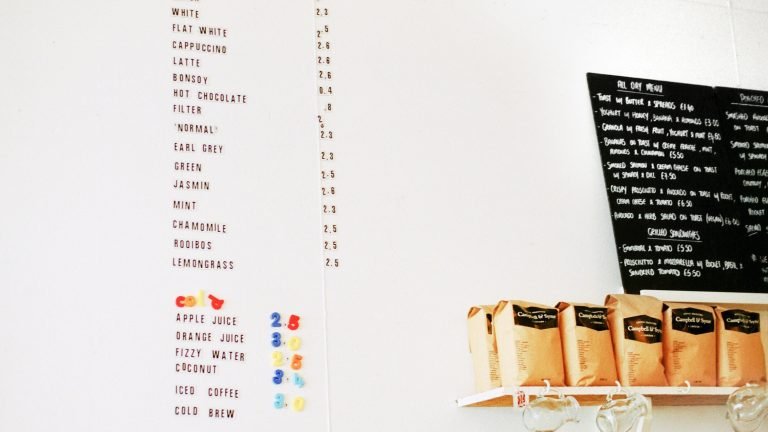 WHITE 2,3
FLAT WHITE 2.5
CAPPUCCINO 2.6
LATTE 2.6
BONSOY 2,6
HOT CHOCOLATE 0.4
FILTER .8
2,
'NORMAL' 2.3
EARL GREY 2,3
GREEN 2.5
JASMIN 2.6
MINT 2.3
CHAMOMILE 2,5
ROOIBOS 2.5
LEMONGRASS 2.5
cold
APPLE JUICE 2.5
ORANGE JUICE 3.0
FIZZY WATER 2.5
COCONUT 3.4
ICED COFFEE 3.0
COLD BREW
ALL DAY MENU
- TOAST W/ BUTTER & SPREADS £1.40
- YOGHURT W/ HONEY, BANANA & ALMONDS £3.00
- GRANOLA W/ FRESH FRUIT, YOGHURT & MINT £4.80
- BANANAS ON TOAST W/ CRÈME FRAICHE, MINT,
ALMONDS & CINNAMON £5.50
- SMOKED SALMON & CREAM CHEESE ON TOAST
W/ SPINACH & DILL £7.50
- CRISPY PROSCIUTTO & AVOCADO ON TOAST W/ ROCKET,
CREAM CHEESE & TOMATO £6.50
- AVOCADO & HERB SALAD ON TOAST (VEGAN) £6.00
GRILLED SANDWICHES
- EMMENTAL & TOMATO £5.50
- PROSCIUTTO & MOZZARELLA W/ ROCKET, BASIL &
SUNDRIED TOMATO £6.50
ON TOAST
SMOKED SALMON
W/ SPINACH
POACHED EGGS
ROCKET
SALAD
Campbell & Syme
Campbell & Syme
Campbell & Syme
Campbell & Syme